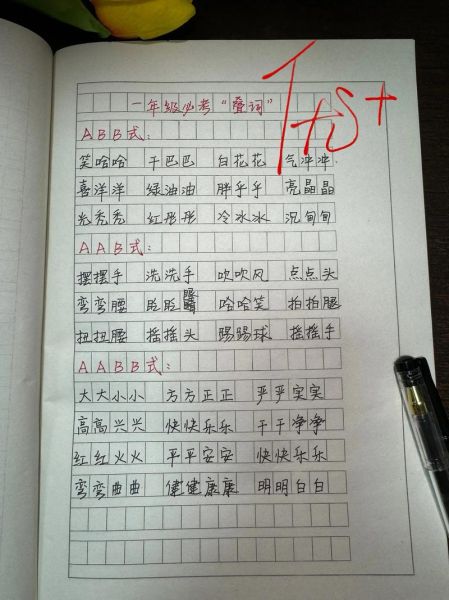 一年级必考“叠词”
ABB式：
笑哈哈 干巴巴 白花花 气冲冲
喜洋洋 绿油油 胖乎乎 亮晶晶
光秃秃 红彤彤 冷冰冰 沉甸甸
AAB式：
摆摆手 洗洗手 吹吹风 点点头
弯弯腰 眨眨眼睛 哈哈笑 拍拍腿
扭扭腰 摇摇头 踢踢球 摇摇手
AABB式：
大大小小 方方正正 严严实实
高高兴兴 快快乐乐 干干净净
红红火火 平平安安 快快乐乐
弯弯曲曲 健健康康 明明白白